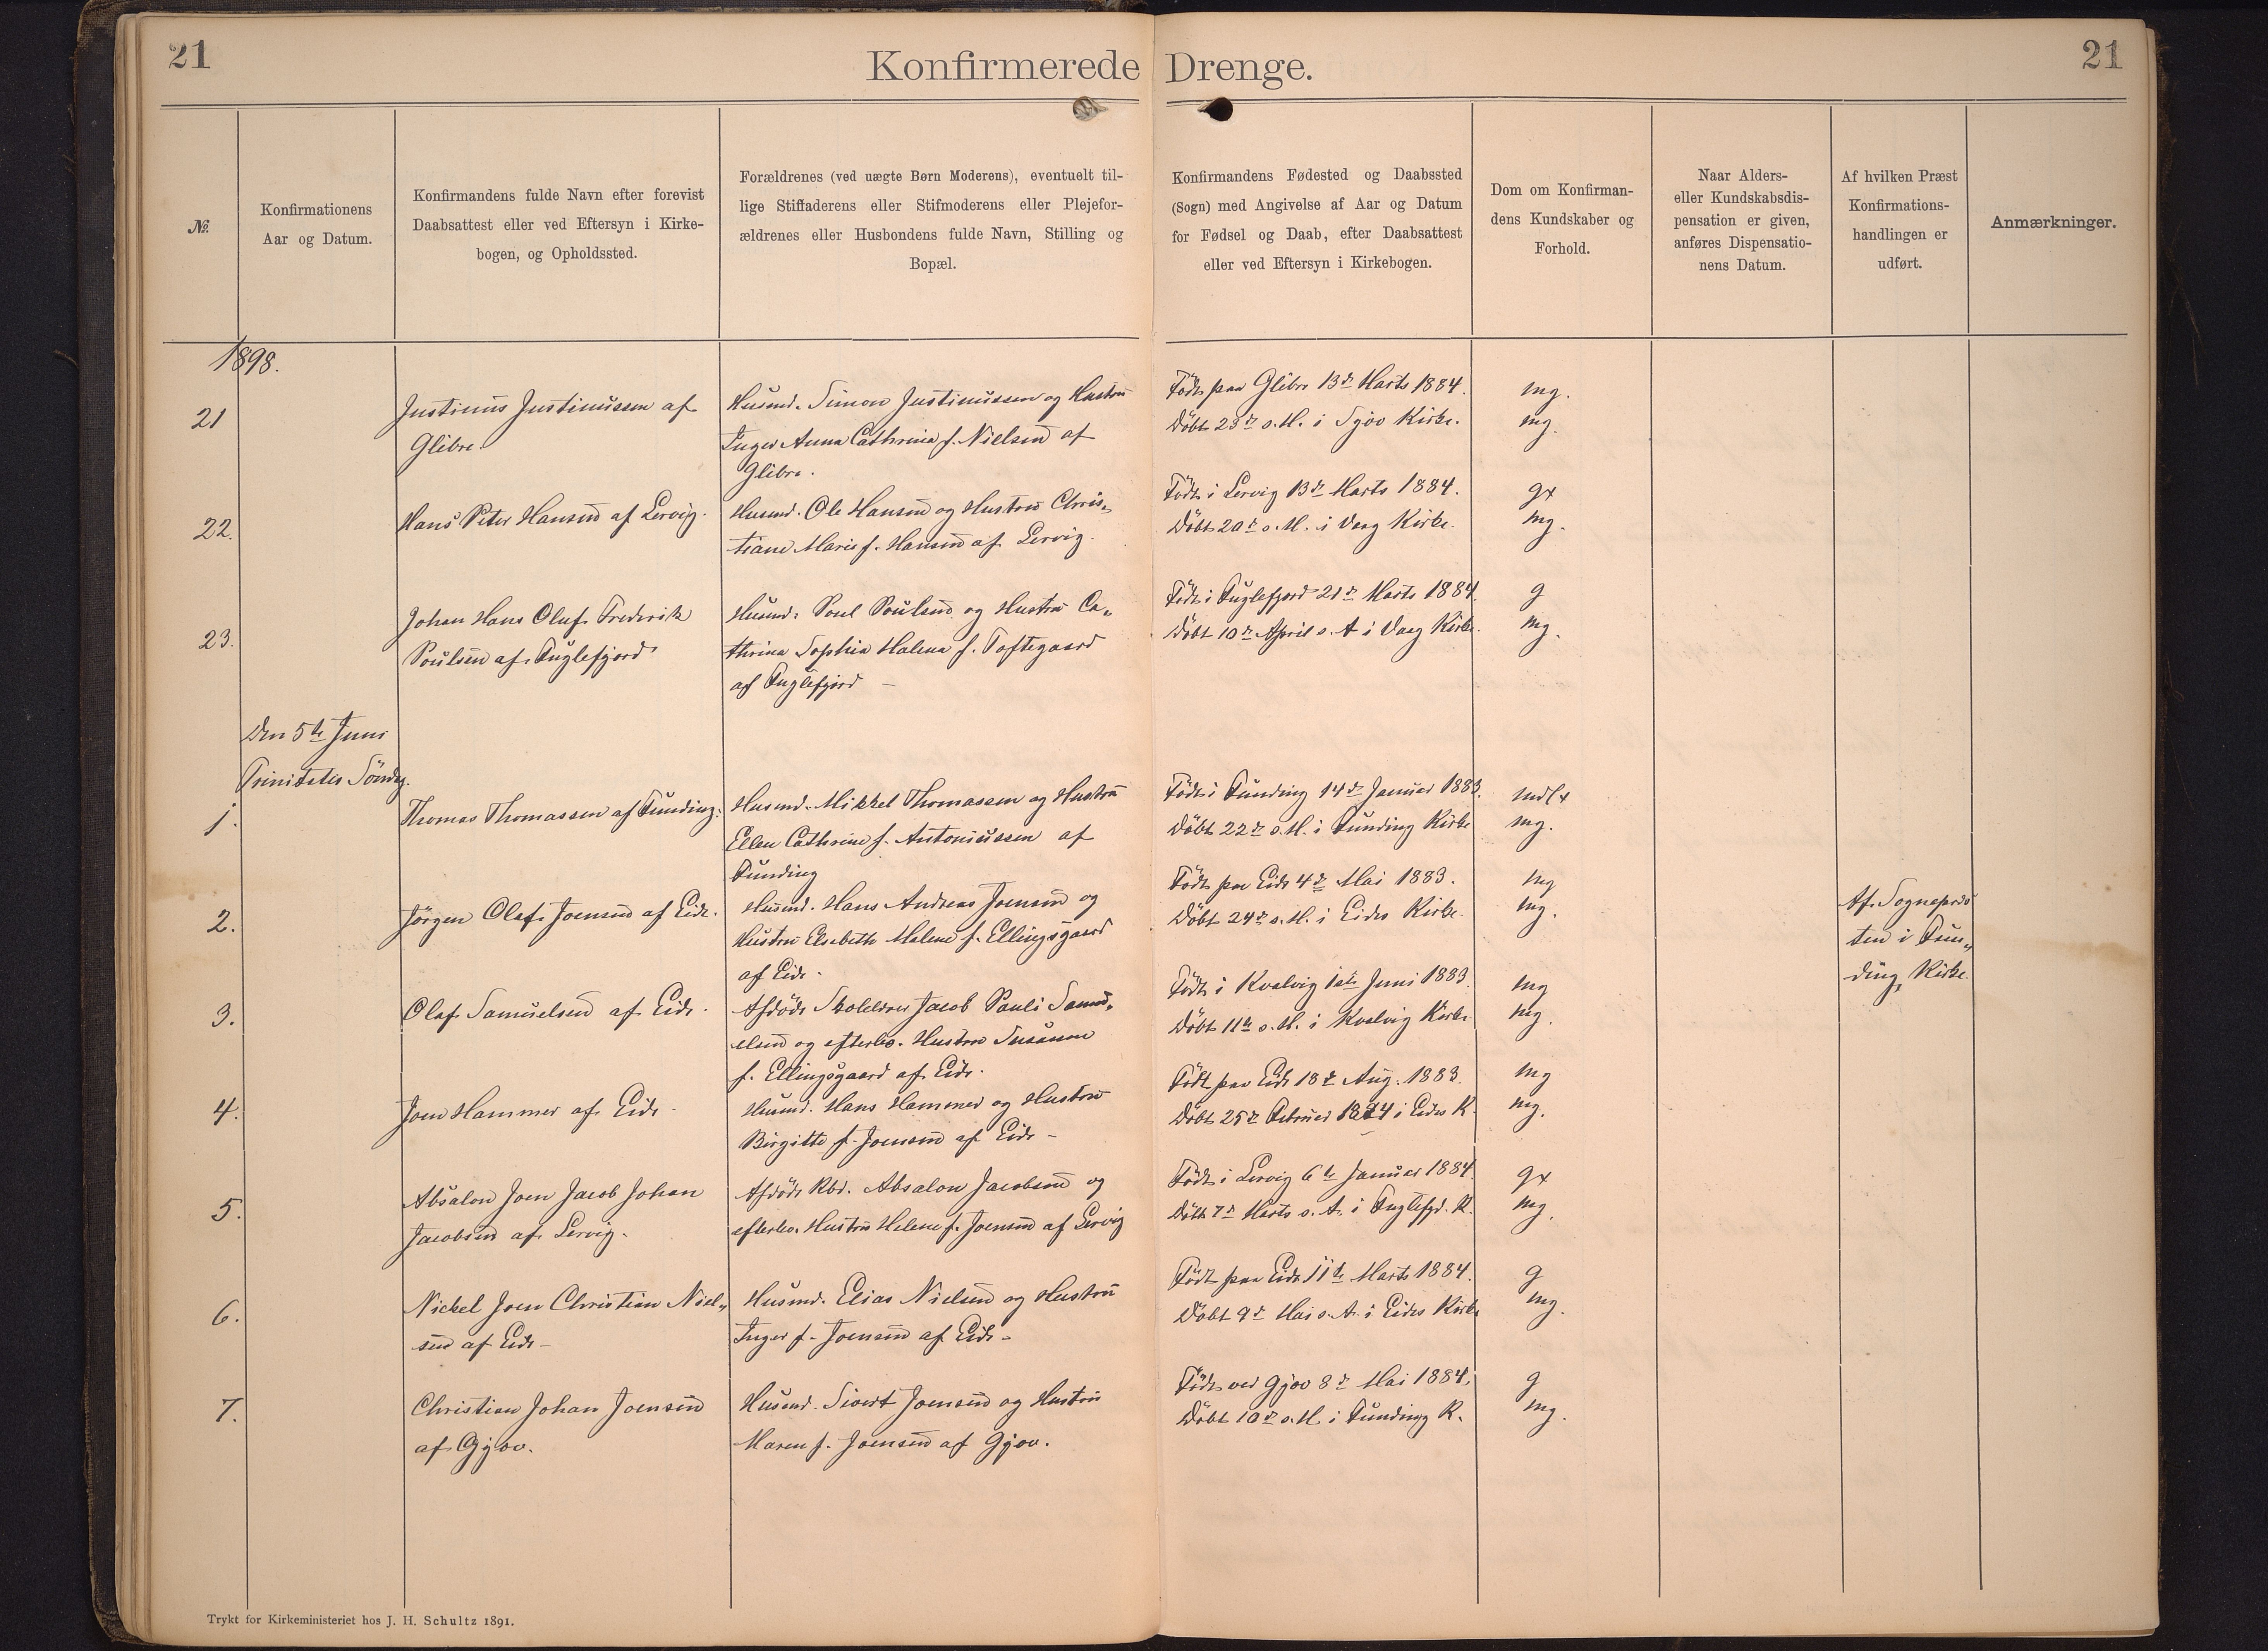 21
Konfirmerede Drenge.
21
№
Konfirmationens
Aar og Datum.
Konfirmandens fulde Navn efter forevist
Daabsattest eller ved Eftersyn i Kirke-
bogen, og Opholdssted.
Forældrenes (ved uægte Børn Moderens), eventuelt til-
lige Stiffaderens eller Stifmoderens eller Plejefor-
ældrenes eller Husbondens fulde Navn, Stilling og
Bopæl.
Konfirmandens Fødested og Daabssted
(Sogn) med Angivelse af Aar og Datum
for Fødsel og Daab, efter Daabsattest
eller ved Eftersyn i Kirkebogen.
Dom om Konfirman-
dens Kundskaber og
Forhold.
Naar Alders-
eller Kundskabsdis-
pensation er given,
anføres Dispensatio-
nens Datum.
Af hvilken Præst
Konfirmations-
handlingen er
udført.
Anmærkninger.
1898.
21
Justinus Justinussen af
Glibre.
Husmd. Simon Justinussen og Hustru
Inger Anna Cathrina f. Nielsen af
Glibre.
Födt paa Glibre 13de Marts 1884.
Döbt 23de s. M. i Sjov Kirke.
mg.
mg.
22.
Hans Peter Hansen af Lervig.
Husmd. Ole Hansen og Hustru Chris„
tiane Marie f. Hansen af Lervig.
Födt i Lervig 13de Marts 1884.
Döbt 20de s. M. i Vaag Kirke.
gx
mg.
23.
Johan Hans Oluf Frederik
Poulsen af Fuglefjord
Husmd. Poul Poulsen og Hustru Ca„
thrina Sophia Malena f. Toftegaard
af Fuglefjord –
Födt i Fuglefjord 21de Marts 1884.
Döbt 10de April s. A i Vaag Kirke.
g
mg.
Den 5te Juni
Trinitatis Söndg.
1.
Thomas Thomassen af Funding.
Husmd. Mikkel Thomassen og Hustru
Ellen Cathrine f. Antoniussen af
Funding
Födt i Funding 14de Januar 1883.
Döbt 22de s. M. i Funding Kirke
mdlx
mg.
2.
Jörgen Olaf Joensen af Eide.
Husmd. Hans Andreas Joensen og
Hustru Elsebeth Malene f. Ellingsgaard
af Eide.
Födt paa Eide 4de Mai 1883.
Döbt 24de s. M. i Eides Kirke.
mg
mg.
Af Sognepræs
ten i Fun„
ding Kirke.
3.
Olaf Samuelsen af Eide.
Afdöde Skolelærer Jacob Pauli Samu„
elsen og efterlev. Hustru Susanne
f. Ellingsgaard af Eide.
Födt i Kvalvig 1ste Juni 1883.
Döbt 11te s. M. i Kvalvig Kirke
mg
mg.
4.
Joen Hammer af Eide
Husmd. Hans Hammer og Hustru
Birgitte f. Joensen af Eide –
Födt paa Eide 18de Aug. 1883.
Döbt 25de Februar 1884 i Eides K.
mg
mg.
5.
Absalon Joen Jacob Johan
Jacobsen af Lervig.
Afdöde Kbd. Absalon Jacobsen og
efterlev. Hustru Helene f. Joensen af Lervig
Födt i Lervig 6te Januar 1884.
Döbt 7de Marts s. A. i Fuglefjd. K.
gx
mg.
6.
Nickel Joen Christian Niel„
sen af Eide –
Husmd. Elias Nielsen og Hustru
Inger f. Joensen af Eide –
Födt paa Eide 11te Marts 1884.
Döbt 9de Mai s. A. i Eides Kirke
g
mg.
7.
Christian Johan Joensen
af Gjov.
Husmd. Sivert Joensen og Hustru
Maren f. Joensen af Gjov.
Födt ved Gjov 8de Mai 1884.
Döbt 10de s. M. i Funding K.
g
mg.
Trykt for Kirkeministeriet hos J. H. Schultz 1891.